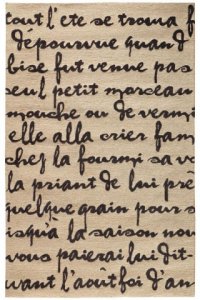 tout l'ete se trouva f
dépourvue quand
bise fut venue pas
seul petit morceau
mouche ou de vermi
elle alla crier fam
chez la fourmi sa v
la priant de lui prê
quelque grain pour s
isqu'a la saison nou
vous paierai lui dit-
vant l'août foi d'an